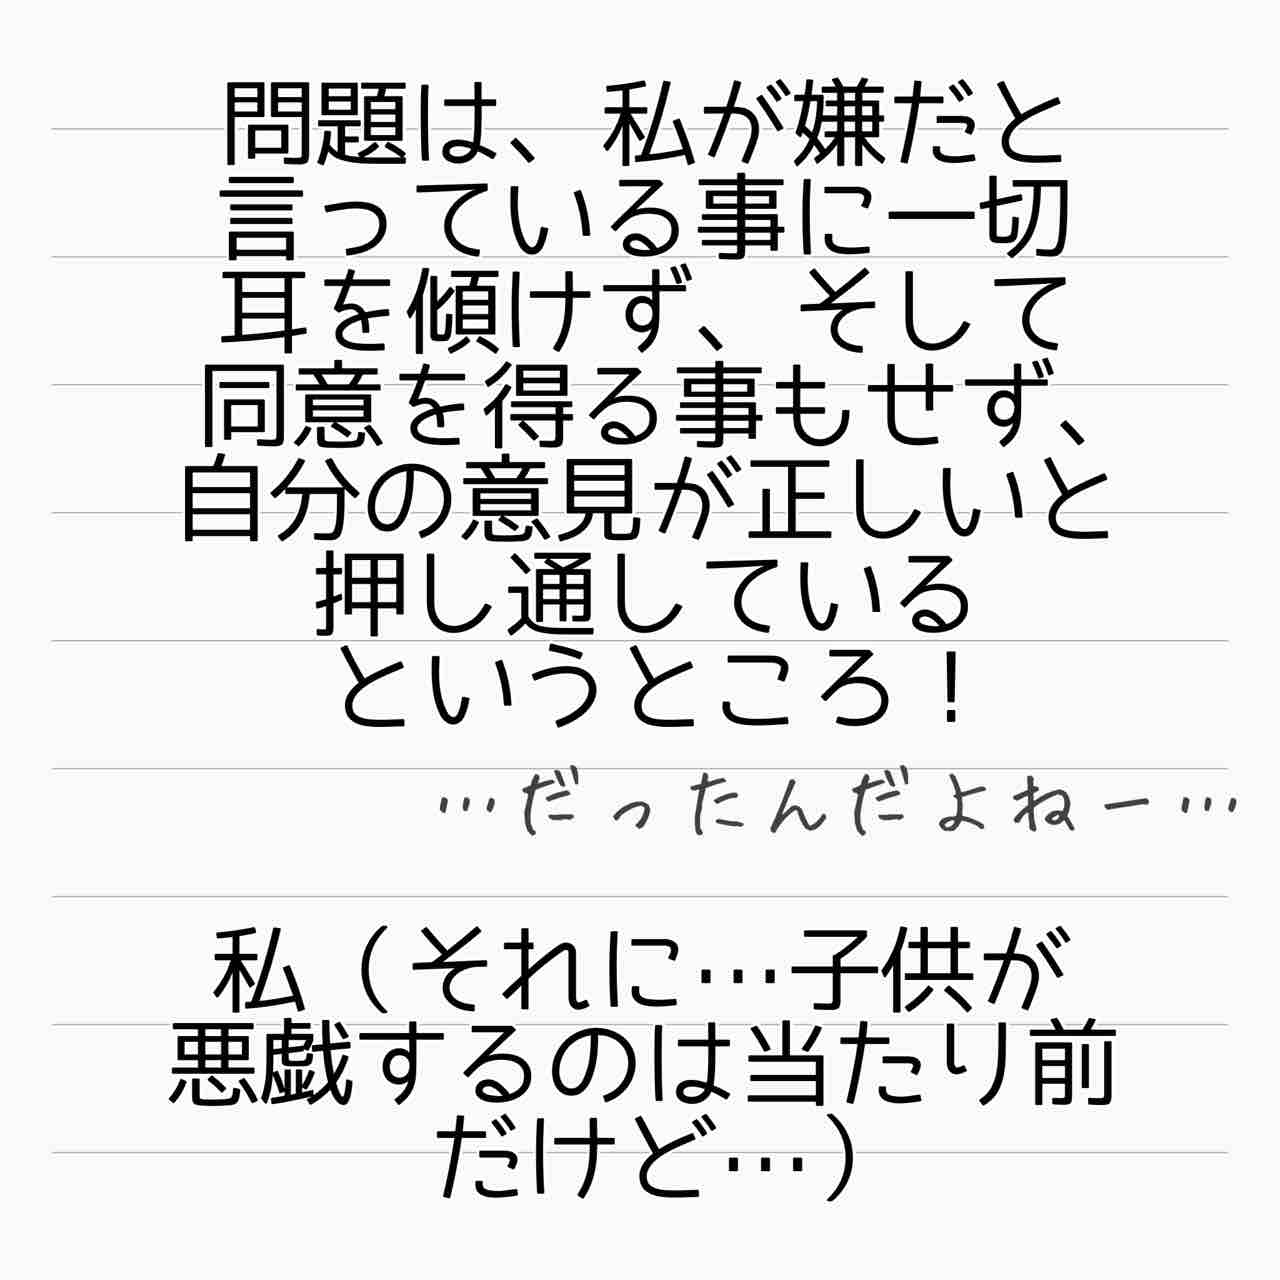 問題は、私が嫌だと
言っている事に一切
耳を傾けず、そして
同意を得る事もせず、
自分の意見が正しいと
押し通している
というところ！
…だったんだよねー…
私（それに…子供が
悪戯するのは当たり前
だけど…）